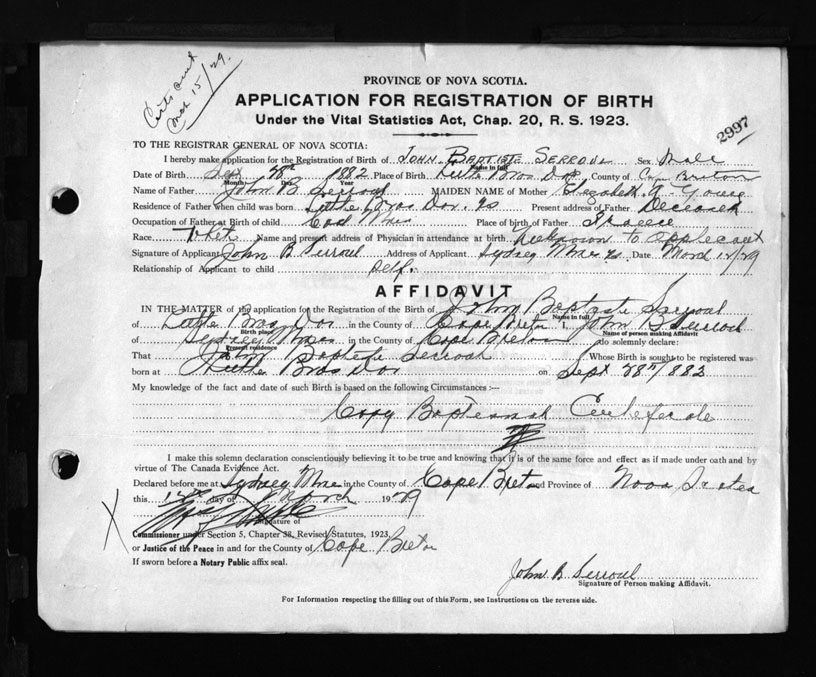 Mar 15/29.
PROVINCE OF NOVA SCOTIA.
APPLICATION FOR REGISTRATION OF BIRTH
Under the Vital Statistics Act, Chap. 20, R. S. 1923.
2997
TO THE REGISTRAR GENERAL OF NOVA SCOTIA:
I hereby make application for the Registration of Birth of JOHN. BAPTISTE SERROUL Sex Male
Name in full
Date of Birth Sep 28th 1882 Place of Birth Little Bras Dor County of Cape Breton
Month Day Year
Name of Father John B Serroul MAIDEN NAME of Mother Elizabeth Young
Residence of Father when child was born Little Bras Dor. Present address of Father Deceased
Occupation of Father at Birth of child Coal Place of birth of Father
Race Name and present address of Physician in attendance at birth Unknown to applicant
Signature of Applicant John B Serroul Address of Applicant Sydney Mines Date March 12/29
Relationship of Applicant to child Self.
AFFIDAVIT
IN THE MATTER of the application for the Registration of the Birth of John Baptiste Serroul
Name in full
of Little Bras Dor in the County of Cape Breton I, John B Serroul
Birth place Name of person making Affidavit
of Sydney Mines in the County of Cape Breton do solemnly declare:
Present residence
That John Baptiste Serroul Whose Birth is sought to be registered was
born at Little Bras Dor on Sept 28th 1882
My knowledge of the fact and date of such Birth is based on the following Circumstances :—
Copy Baptismal Certificate
I make this solemn declaration conscientiously believing it to be true and knowing that it is of the same force and effect as if made under oath and by
virtue of The Canada Evidence Act.
Declared before me at Sydney Mines in the County of Cape Breton and Province of Nova Scotia
this 12th day of March 1929
Signature of
Commissioner under Section 5, Chapter 38, Revised Statutes, 1923.
or Justice of the Peace in and for the County of Cape Breton
If sworn before a Notary Public affix seal.
John B. Serroul
Signature of Person making Affidavit.
For Information respecting the filling out of this Form, see Instructions on the reverse side.